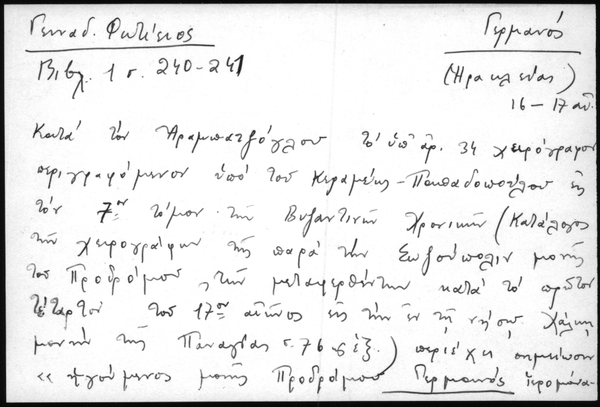 Γενναδ. Φωτίειος
Γερμανός
Βιβλ. 1 σ. 240-241
(Ηρακλείας)
16-17 αἰ.
Κατά τόν Ἀραμπατζόγλου τό ὑπ' ἀρ. 34 χειρόγραφον
περιγραφόμενον ὑπό τοῦ Κεραμέως-Παπαδοπούλου εἰς
τόν 7ον τόμον τῶν Βυζαντινῶν Χρονικῶν (Κατάλογος
τῶν χειρογράφων τῆς παρά τήν Σωζούπολιν μονῆς
τοῦ Προδρόμου, τῶν μεταφερθέντων κατά τό πρῶτον
τέταρτον τοῦ 17ου αἰῶνος εἰς τήν ἐν τῇ νήσῳ Χάλκῃ
μονήν τῆς Παναγίας σ. 76 ἑξ.) περιέχει σημείωσιν
« ἡγούμενος μονῆς Προδρόμου Γερμανός ἱερομόνα-